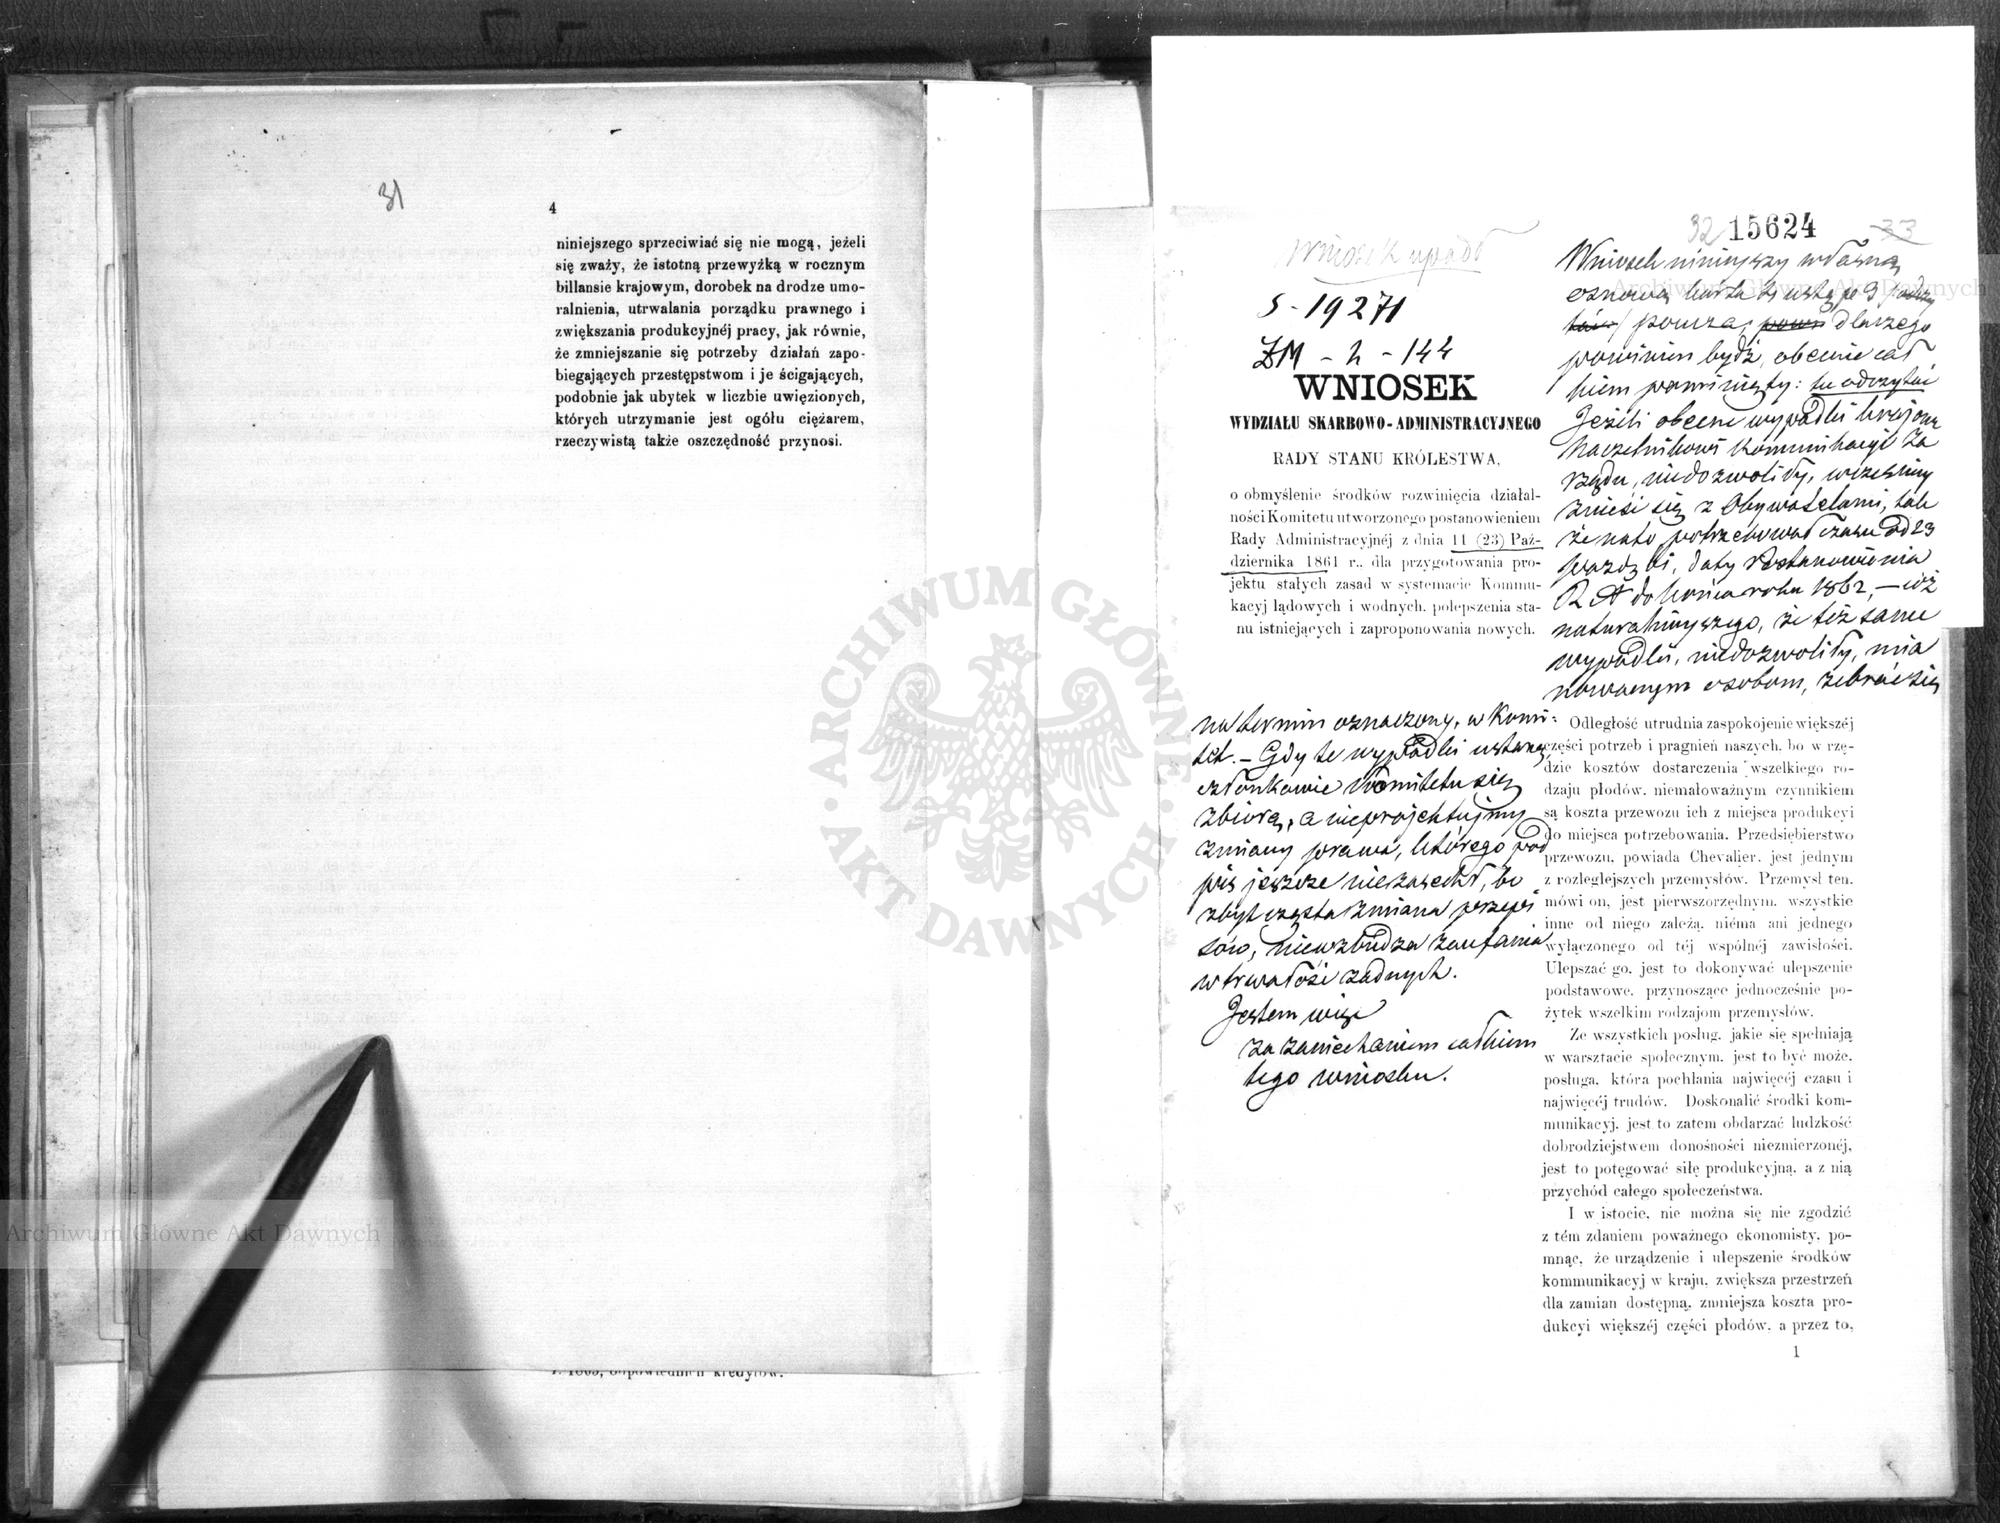 31
4
niniejszego sprzeciwiać się nie mogą, jeżeli
się zważy, że istotną przewyżką w rocznym
billansie krajowym, dorobek na drodze umo-
ralnienia, utrwalania porządku prawnego i
zwiększania produkcyjnéj pracy, jak równie,
że zmniejszanie się potrzeby działań zapo-
biegających przestępstwom i je ścigających,
podobnie jak ubytek w liczbie uwięzionych,
których utrzymanie jest ogółu ciężarem,
rzeczywistą także oszczędność przynosi.
r. 1863, odpowiednich kredytów.
Archiwum Główne Akt Dawnych
ARCHIWUM GŁÓWNE AKT DAWNYCH
32 15624 33
Wniosek upadł
S-19271
ZM-2-144
WNIOSEK
WYDZIAŁU SKARBOWO-ADMINISTRACYJNEGO
RADY STANU KRÓLESTWA,
o obmyślenie środków rozwinięcia działal-
ności Komitetu utworzonego postanowieniem
Rady Administracyjnéj z dnia 11 (23) Paź-
dziernika 1861 r., dla przygotowania pro-
jektu stałych zasad w systemacie Kommu-
kacyj lądowych i wodnych, polepszenia sta-
nu istniejących i zaproponowania nowych.
Wniosek niniejszy własną
osnową karta ustęp 3
poucza, dlaczego
powinien bydź, obecnie cał
kiem pominięty: tu odczytać
Jeżeli obecne wypadki krajowe
Naczelnikowi Kommunikacyi Za
rządu, niedozwoliły, wcześniey
znieść się z Obywatelami, tak
że na to potrzebował czasu od 23
paździ, daty Postanowienia
R A do końca roku 1862, — cóż
naturalniejszego, że też same
wypadki, niedozwoliły, mia
nowanym osobom, zebrać się
Archiwum Główne Akt Dawnych
na termin oznaczony, w Komi:
tet. — Gdy te wypadki ustaną,
członkowie Komitetu się
zbiorą, a nieprojektujmy
zmiany prawa, którego pod
pis jeszcze niezasechł, bo
zbyt częsta zmiana przepi
sów, niewzbudza zaufania
w trwałość żadnych.
Jestem więc
za zaniechaniem całkiem
tego wniosku.
Odległość utrudnia zaspokojenie większéj
części potrzeb i pragnień naszych, bo w rzę-
dzie kosztów dostarczenia wszelkiego ro-
dzaju płodów, niemałoważnym czynnikiem
są koszta przewozu ich z miejsca produkcyi
do miejsca potrzebowania. Przedsiębierstwo
przewozu, powiada Chevalier, jest jednym
z rozleglejszych przemysłów. Przemysł ten,
mówi on, jest pierwszorzędnym, wszystkie
inne od niego zależą, niéma ani jednego
wyłączonego od téj wspólnéj zawisłości.
Ulepszać go, jest to dokonywać ulepszenie
podstawowe, przynoszące jednocześnie po-
żytek wszelkim rodzajom przemysłów.
Ze wszystkich posług, jakie się spełniają
w warsztacie społecznym, jest to być może,
posługa, która pochłania najwięcéj czasu i
najwięcéj trudów. Doskonalić środki kom-
munikacyj, jest to zatem obdarzać ludzkość
dobrodziejstwem donośności niezmierzonéj,
jest to potęgować siłę produkcyjną, a z nią
przychód całego społeczeństwa.
I w istocie, nie można się nie zgodzić
z tém zdaniem poważnego ekonomisty, po-
mnąc, że urządzenie i ulepszenie środków
kommunikacyj w kraju, zwiększa przestrzeń
dla zamian dostępną, zmniejsza koszta pro-
dukcyi większéj części płodów, a przez to,
1